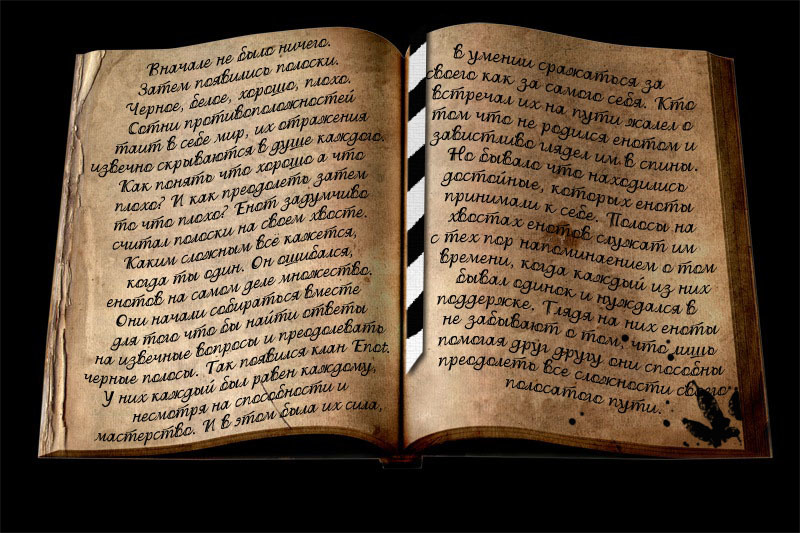 Вначале не было ничего.
Затем появились полоски.
Черное, белое, хорошо, плохо.
Сотни противоположностей
таит в себе мир, их отражения
извечно скрываются в душе каждого.
Как понять что хорошо а что
плохо? И как преодолеть затем
то что плохо? Енот задумчиво
считал полоски на своем хвосте.
Каким сложным всё кажется,
когда ты один. Он ошибался,
енотов на самом деле множество.
Они начали собираться вместе
для того что бы найти ответы
на извечные вопросы и преодолевать
черные полосы. Так появился клан Enot.
У них каждый был равен каждому,
несмотря на способности и
мастерство. И в этом была их сила,
в умении сражаться за
своего как за самого себя. Кто
встречал их на пути жалел о
том что не родился енотом и
завистливо глядел им в спины.
Но бывало что находились
достойные, которых еноты
принимали к себе. Полосы на
хвостах енотов служат им
с тех пор напоминанием о том
времени, когда каждый из них
бывал одинок и нуждался в
поддержке. Глядя на них еноты
не забывают о том, что лишь
помогая друг другу они способны
преодолеть все сложности своего
полосатого пути.